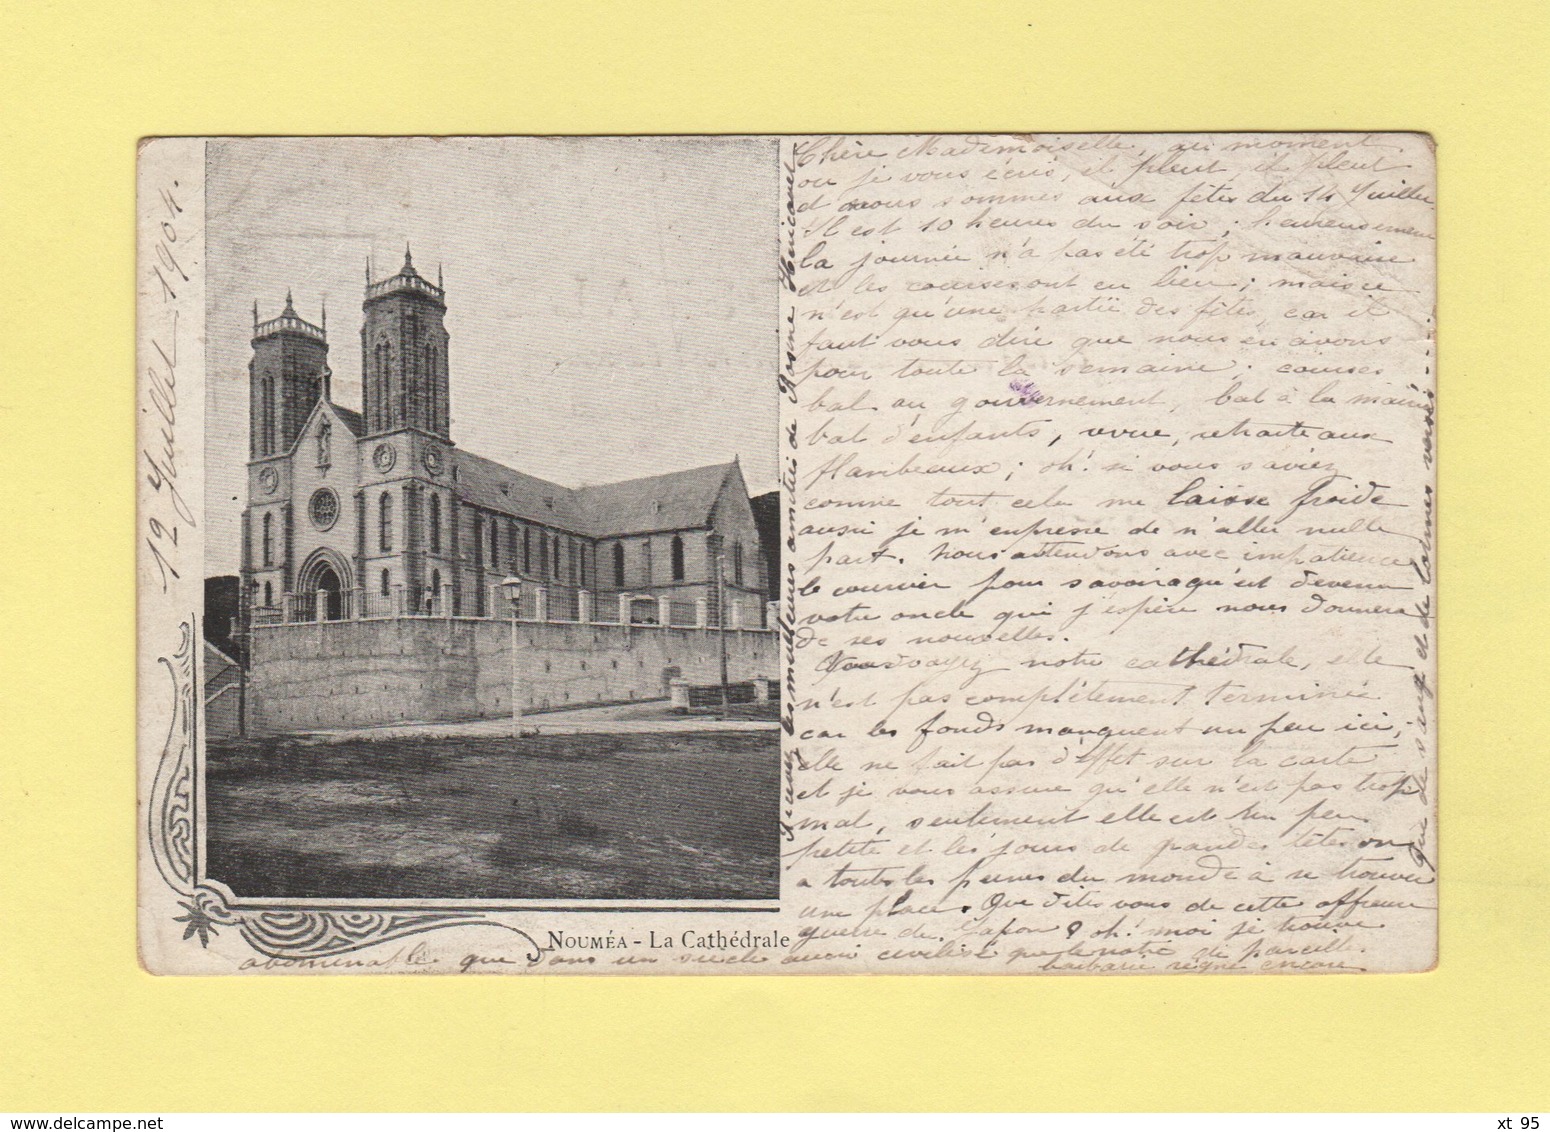 12 Juillet 1904.
Chère Mademoiselle, au moment
ou je vous écris, il pleut, il pleut
et nous sommes aux fêtes du 14 Juillet.
Il est 10 heures du soir ; heureusement
la journée n'a pas été trop mauvaise
et les courses ont eu lieu ; mais ce
n'est qu'une partie des fêtes, car il
faut vous dire que nous en avons
pour toute la semaine ; courses
bal au gouvernement, bal à la mairie
bal d'enfants, revue, retraite aux
flambeaux ; oh! si vous saviez
comme tout cela me laisse froide
aussi je m'empresse de n'aller nulle
part. Nous attendons avec impatience
le courrier pour savoir ce qu'est devenu
votre oncle qui j'espère nous donnera
de ses nouvelles.
Vous voyez notre cathédrale, elle
n'est pas complètement terminée
car les fonds manquent un peu ici ;
elle ne fait pas d'effet sur la carte
et je vous assure qu'elle n'est pas trop
mal, seulement elle est un peu
petite et les jours de grandes fêtes on
a toutes les peines du monde à se trouver
une place. Que dites vous de cette affreuse
guerre du Japon ? oh! moi je trouve
abominable que dans un siècle aussi civilisé que le notre de pareille
barbarie règne encore
que de sang et de larmes versés....
Recevez les meilleures amitiés de Rosine
Nouméa - La Cathédrale
xt 95